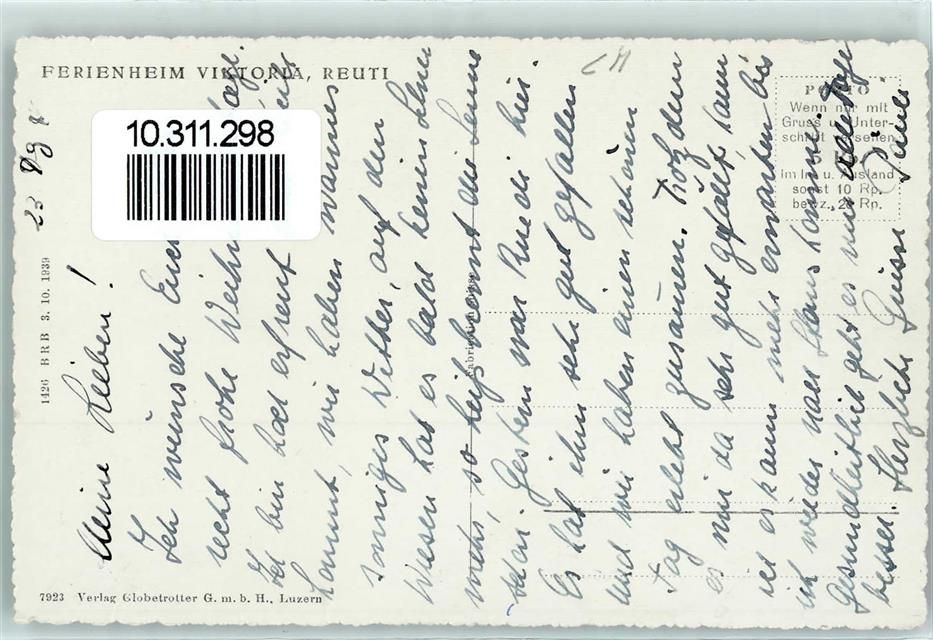 FERIENHEIM VIKTORIA, REUTI
10.311.298
PORTO
Wenn nur mit
Gruss u. Unter-
schrift versehen
5 Rp.
Im In u. Ausland
sonst 10 Rp.
bezw. 20 Rp.
1426 BRB 3. 10. 1939
7923 Verlag Globetrotter G. m. b. H., Luzern
Meine Lieben!
Ich wünsche Euch
recht frohe Weihn
Ich bin hoch erfreut
kommt, wir haben warmes
sonniges Wetter, auf den
Wiesen hat es bald keinen Schnee
mehr, so heiss brennt die Sonne
schon. Gestern war Ruedi hier.
Es hat ihm sehr gut gefallen
und wir haben einen schönen
Tag erlebt zusammen. Trotzdem
es mir da sehr gut gefällt, kann
ich es kaum mehr erwarten bis
ich wieder nach Haus kommen
Gesundheitlich geht es mir alle Tage
besser. Herzliche Grüsse